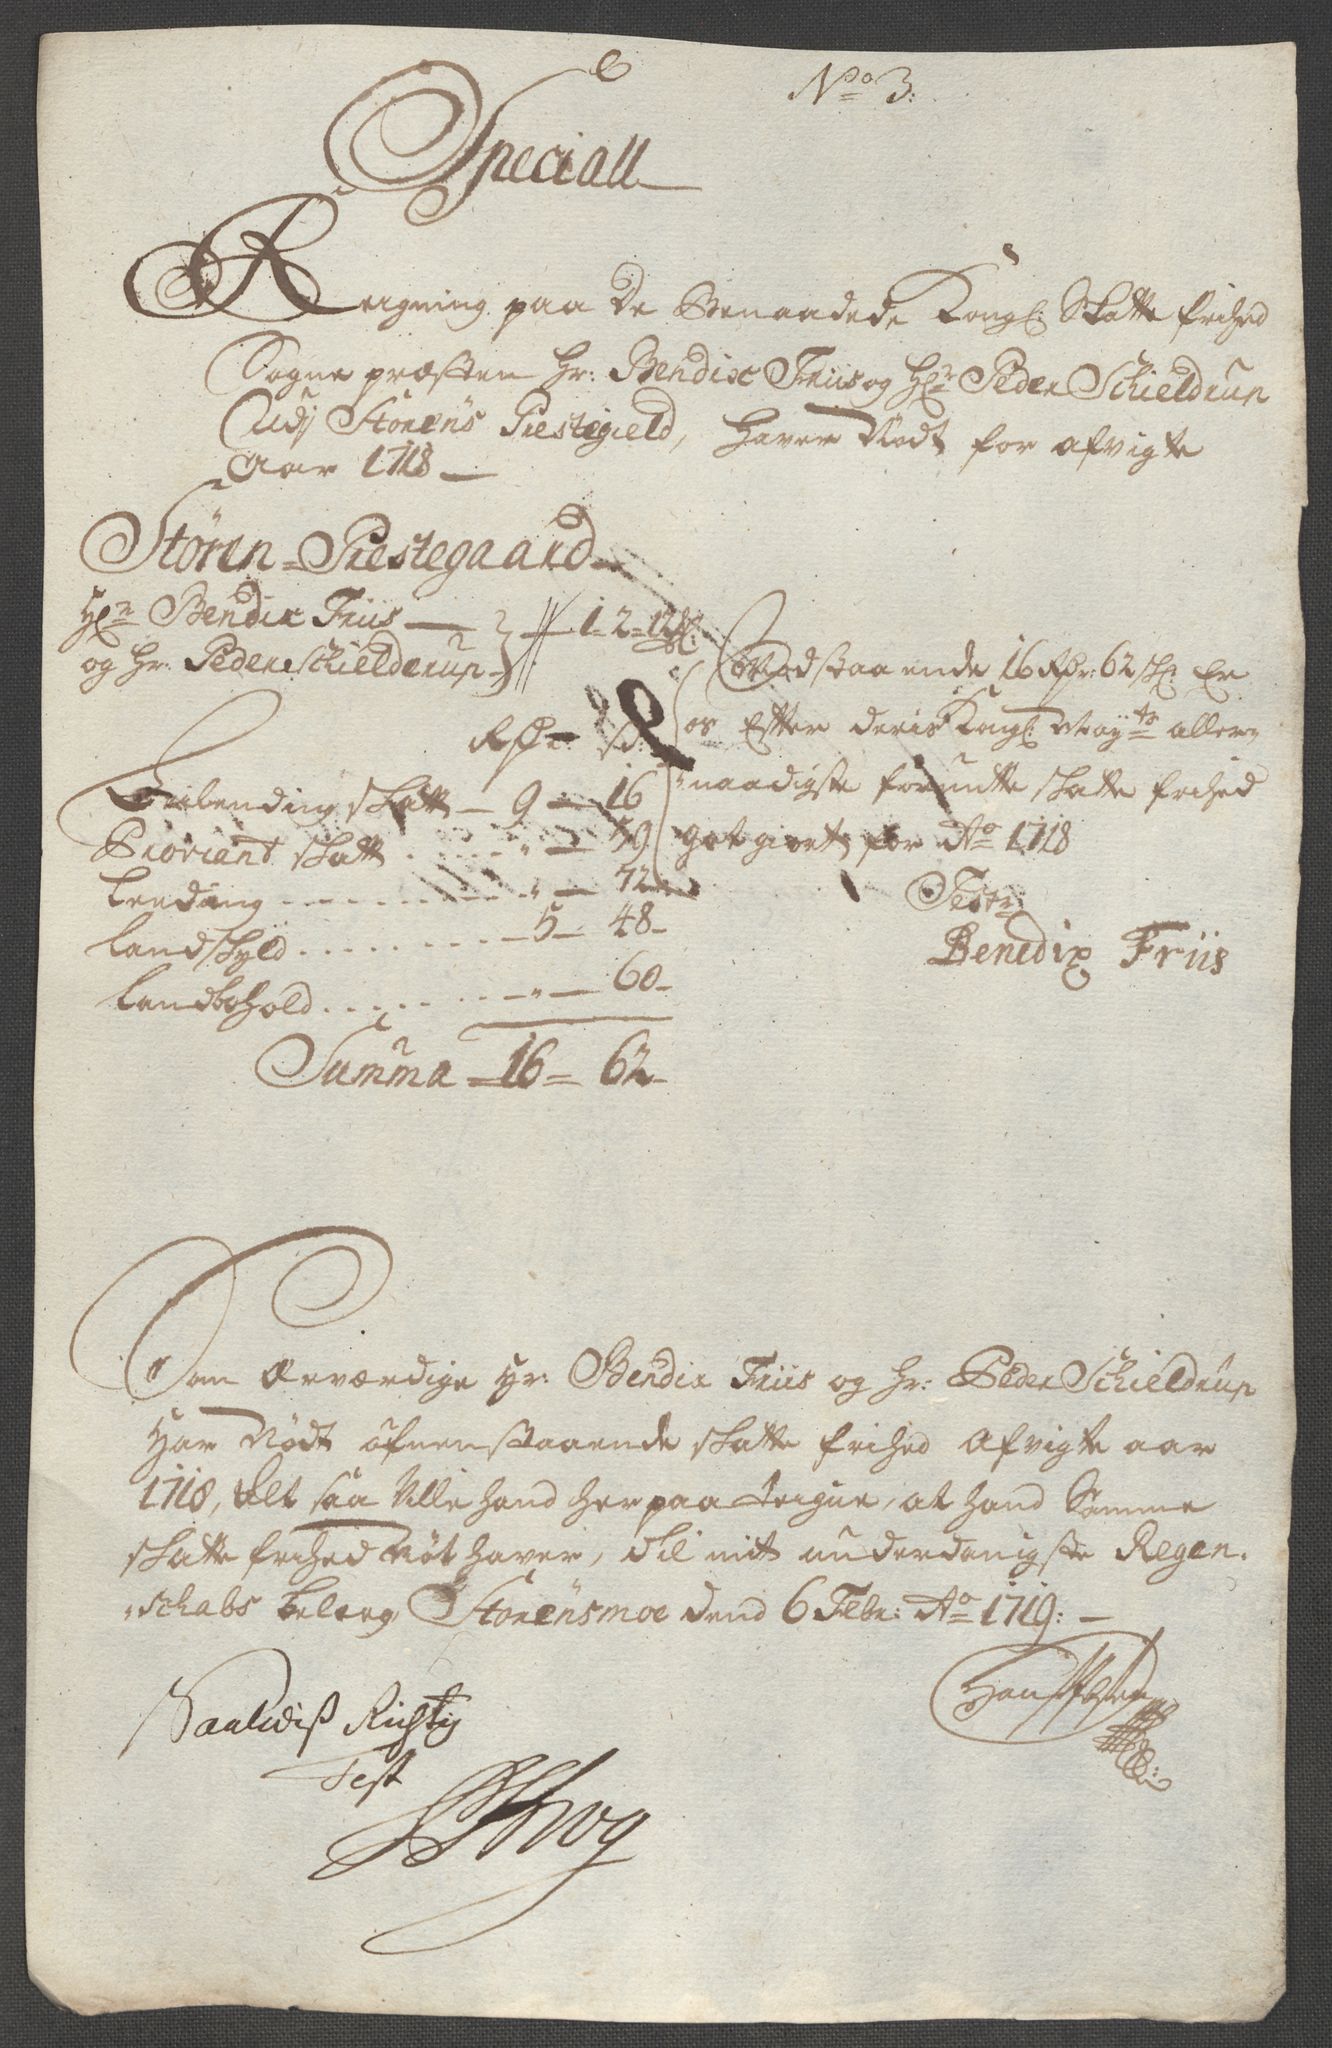 No 3:
Speciall
Reigning paa De Benaadede Kongl: Skatte frihed
Sogne præsten Hr: Bendix Friis og Hr Peder Schieldrup
Udj Størens Prestegield, haver Nødt for afvigte
Aar 1718
Støren Prestegaard
Hr Bendix Friis
og Hr: Peder Schielderup 1-2-12
Rdr: s:
Leilending skatt 9 16
Proviant skatt " 59
Leeding " 72
Landskyld 5 48
Landbohold " 60
Summa 16 62
Modstaaende 16 Rdr: 62 s: Er
os Efter deris Kongl: May:ts aller-
naadigste forundte skatte frihed
got giort for Ao 1718
Test:
Benedix Friis
Som Ærværdige Hr: Bendix Friis og Hr: Peder Schieldrup
Har Nødt ofvenstaaende skatte frihed afvigte aar
1718, Alt saa Ville hand her paa teigne, at hand Samme
skatte frihed Nøt haver, til mit underdanigste Regen-
schabs belæg Størensmoe dend 6 Febr: Ao 1719:
Saaledis Rigtig
Test